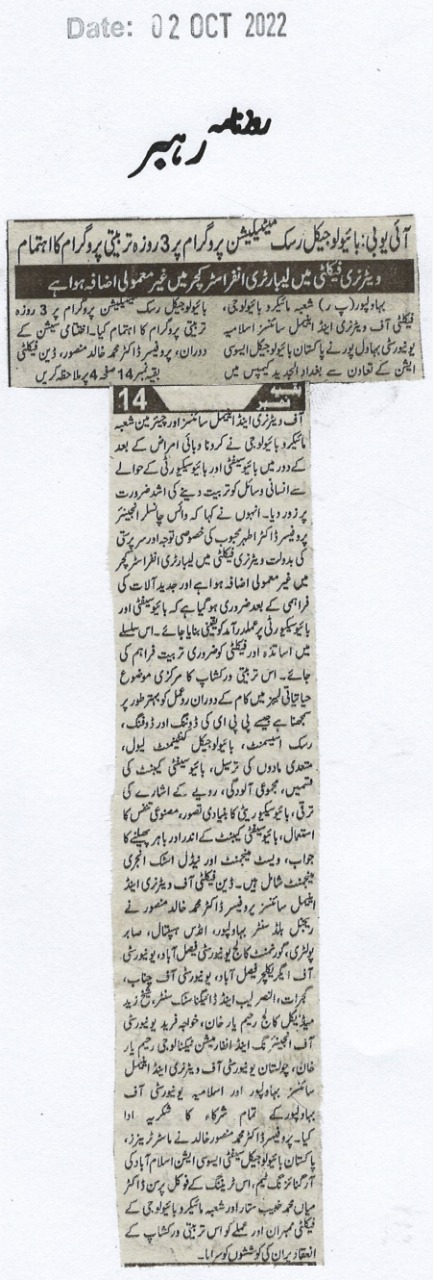 Date: 02 OCT 2022
روزنامہ
رہبر
آئی یو بی: بائیولوجیکل رسک مینجمنٹ پروگرام پر 3 روزہ تربیتی پروگرام کا اہتمام
ویٹرنری فیکلٹی میں لیبارٹری انفراسٹرکچر میں غیر معمولی اضافہ ہوا ہے
بہاولپور (پ ر) شعبہ مائیکرو بائیولوجی،
فیکلٹی آف ویٹرنری اینڈ اینیمل سائنسز اسلامیہ
یونیورسٹی بہاول پور نے پاکستان بائیولوجیکل ایسوسی
ایشن کے تعاون سے بغداد الجدید کیمپس میں
بائیولوجیکل رسک پروگرام پر 3 روزہ
تربیتی پروگرام کا اہتمام کیا۔ اختتامی سیشن کے
دوران، پروفیسر ڈاکٹر محمد خالد منصور، ڈین فیکلٹی
بقیہ نمبر 14 صفحہ 4 پر ملاحظہ کریں
بقیہ نمبر 14
آف ویٹرنری اینڈ اینیمل سائنسز اور چیئرمین شعبہ
مائیکرو بائیولوجی نے کرونا وبائی امراض کے بعد
کے دور میں بائیوسیفٹی اور بائیوسیکیورٹی کے حوالے
سے انسانی وسائل کو تربیت دینے کی اشد ضرورت
پر زور دیا۔ انہوں نے کہا کہ وائس چانسلر انجینئر
پروفیسر ڈاکٹر اطہر محبوب کی خصوصی توجہ اور سرپرستی
کی بدولت ویٹرنری فیکلٹی میں لیبارٹری انفراسٹرکچر
میں غیر معمولی اضافہ ہوا ہے اور جدید آلات کی
فراہمی کے بعد ضروری ہو گیا ہے کہ بائیوسیفٹی اور
بائیوسیکیورٹی پر عملدرآمد کو یقینی بنایا جائے۔ اس سلسلے
میں اساتذہ اور فیکلٹی کو ضروری تربیت فراہم کی
جائے۔ اس تربیتی ورکشاپ کا مرکزی موضوع
حیاتیاتی لیبز میں کام کے دوران ردعمل کو بہتر طور پر
سمجھنا ہے جیسے پی پی ای کی ڈوننگ اور ڈوفنگ،
رسک اسیسمنٹ، بائیولوجیکل کنٹینمنٹ لیول،
متعدی مادوں کی ترسیل، بائیوسیفٹی کیبنٹ کی
قسمیں، مجموعی آلودگی، رویے کے اشارے کی
ترقی، بائیوسیکیوریٹی کا بنیادی تصور، مصنوعی تنفس کا
استعمال، بائیوسیفٹی کیبنٹ کے اندر اور باہر پھیلنے کا
جواب، ویسٹ مینجمنٹ اور نیڈل اسٹک انجری
مینجمنٹ شامل ہیں۔ ڈین فیکلٹی آف ویٹرنری اینڈ
اینیمل سائنسز پروفیسر ڈاکٹر محمد خالد منصور نے
ریجنل بلڈ سنٹر بہاولپور، انڈس ہسپتال، صابر
پولٹری، گورنمنٹ کالج یونیورسٹی فیصل آباد، یونیورسٹی
آف ایگریکلچر فیصل آباد، یونیورسٹی آف چناب،
گجرات، النصر لیب اینڈ ڈائیگناسٹک سنٹر، شیخ زید
میڈیکل کالج رحیم یار خان، خواجہ فرید یونیورسٹی
آف انجینئرنگ اینڈ انفارمیشن ٹیکنالوجی رحیم یار
خان، چولستان یونیورسٹی آف ویٹرنری اینڈ اینیمل
سائنسز بہاولپور اور اسلامیہ یونیورسٹی آف
بہاولپور کے تمام شرکاء کا شکریہ ادا
کیا۔ پروفیسر ڈاکٹر محمد منصور خالد نے ماسٹر ٹرینرز،
پاکستان بائیولوجیکل سیفٹی ایسوسی ایشن اسلام آباد کی
آرگنائزنگ ٹیم، اس ٹریننگ کے فوکل پرسن ڈاکٹر
میاں محمد ستار اور شعبہ مائیکرو بائیولوجی کے
فیکلٹی ممبران اور عملے کو اس تربیتی ورکشاپ کے
انعقاد پر ان کی کوششوں کو سراہا۔